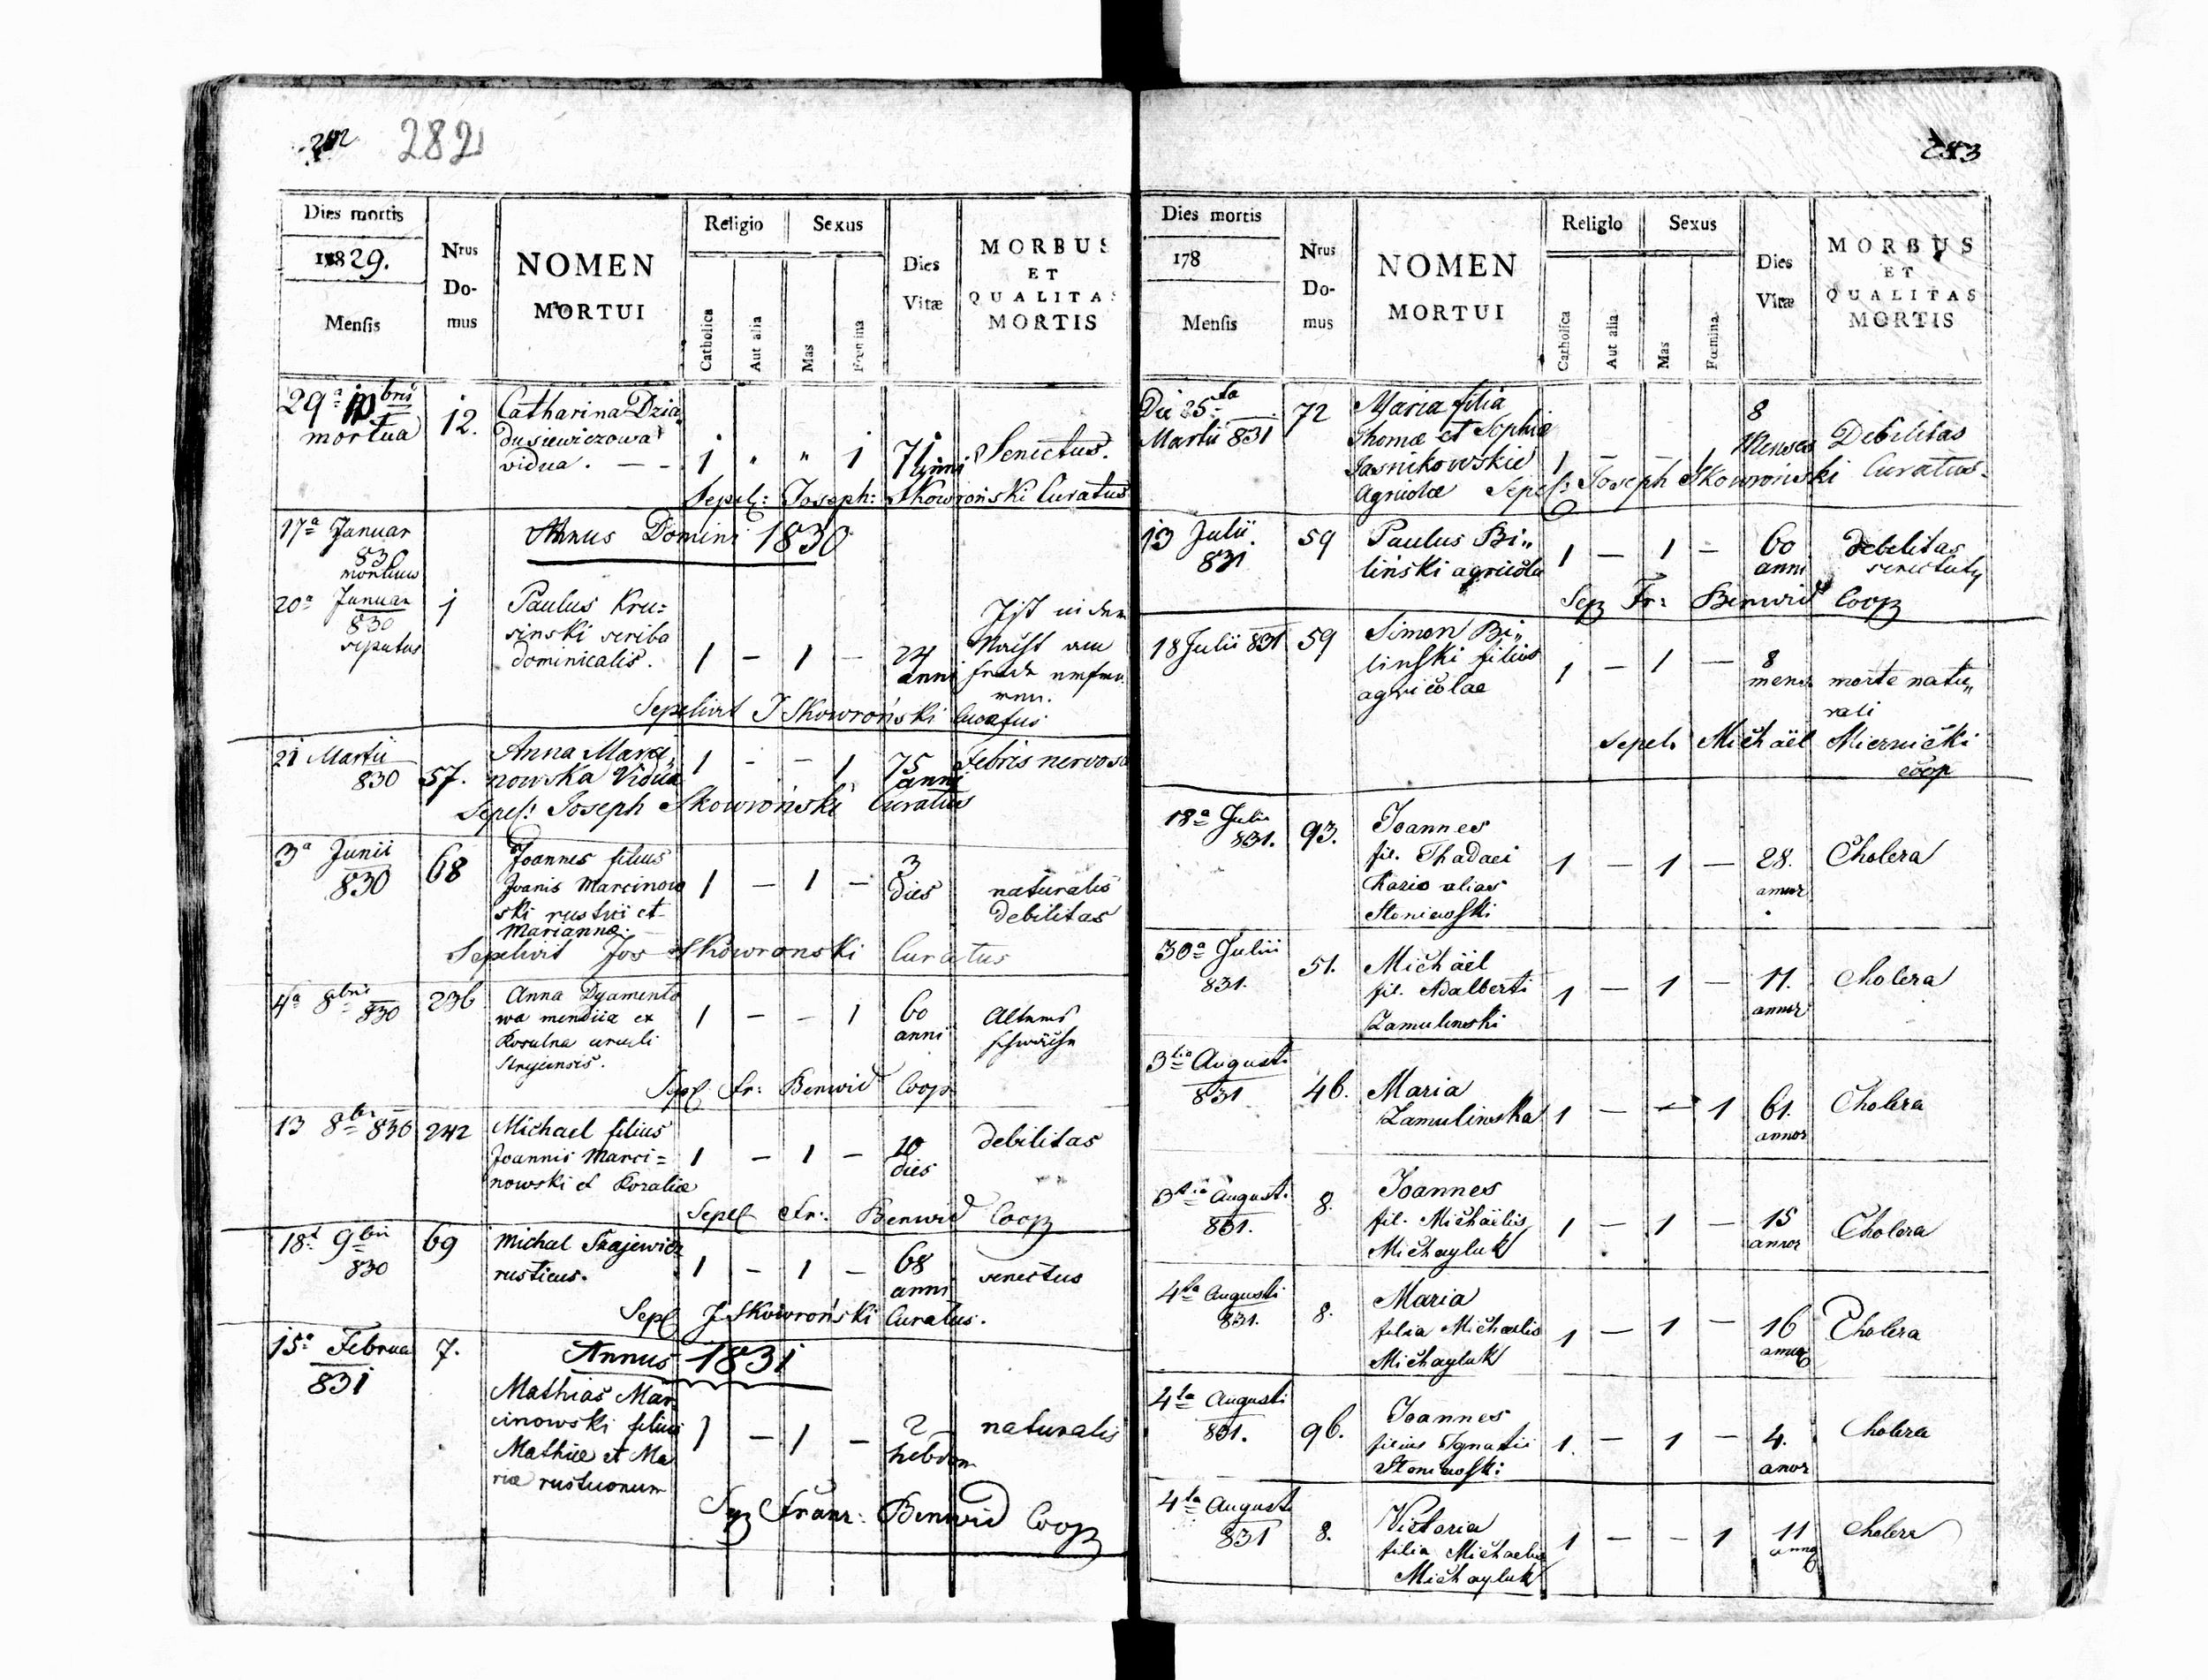 282
Dies mortis
1829.
Mensis
Nrus
Do-
mus
NOMEN
MORTUI
Religio
Catholica
Aut alia
Sexus
Mas
Fœmina
Dies
Vitæ
MORBUS
ET
QUALITAS
MORTIS
29a Xbris
mortua
12.
Catharina Dzia
dusiewiczowa
vidua. — -
1 " " 1
71 anni
Senectus.
Sepel: Joseph: Skowroński Curatus
Annus Domini 1830
17a Januar
830
mortuus
20a Januar
830
seputus
1
Paulus Kru=
sinski scriba
dominicalis.
1 — 1 —
24
anni
Sepelivit J Skowroński Curatus
21 Martii
830
57.
Anna Marci,
nowska Vidua
1 - - 1
75
anni
Febris nervosa
Sepel: Joseph Skowroński Curatus
3a Junii
830
68
Joannes filius
Joanis Marcinow
ski rustici et
Marianna.
1 — 1 —
3
dies
naturalis
debilitas
Sepelivit Jos Skowronski Curatus
4ta 8bris
830
236
Anna Dyamento
wa mendica ex
Rosulna
Stryiensis.
1 - - 1
60
anni
Altens
schwäche
Sepel Fr: Benwid Coop
13 8br 830
242
Michael filius
Joannis Marci=
nowski et Rosaliæ
1 — 1 —
10
dies
debilitas
Sepel Fr: Benwid Coop
18a 9bris
830
69
Michal Szajewicz
rusticus.
1 — 1 —
68
anni
senectus
Sepel J Skowroński Curatus.
Annus 1831
15a Februa
831
7.
Mathias Mar
cinowski filius
Mathiæ et Ma
riæ rusticorum
1 — 1 —
2
hebdom
naturalis
Sep Franz: Benwid Coop
283
Dies mortis
178
Mensis
Nrus
Do-
mus
NOMEN
MORTUI
Religio
Catholica
Aut alia
Sexus
Mas
Fœmina
Dies
Vitæ
MORBUS
ET
QUALITAS
MORTIS
Die 25ta
Martii 831
72
Maria filia
Thomæ et Sophiæ
Jasnikowskie
Agricolæ
1 - - 1
8
Menses
Debilitas
Sepel: Joseph Skowroński Curatus
13 Julii.
831
59
Paulus Bi„
linski agricola
1 — 1 —
60
anni
Debilitas
senectuty
Sep Fr: Benwid Coop
18 Julii 831
59
Simon Bi„
linski filius
agricolae
1 — 1 —
8
mens
morte natu„
rali
Sepel. Michäel Miernicki
coop
18a Julii
831.
93.
Joannes
fil. Thadaei
Kazio alias
Stoniewski
1 — 1 —
28.
annor
Cholera
30a Julii
831.
51.
Michäel
fil. Adalberti
Zamulinski
1 — 1 —
11.
annor
Cholera
3tia Augusti
831
46.
Maria
Zamulinska
1 — — 1
61.
annor
Cholera
3tia Augusti
831.
8.
Joannes
fil. Michäelis
Michayluk
1 — 1 —
15
annor
Cholera
4ta Augusti
831.
8.
Maria
filia Michaelis
Michayluk
1 — 1 —
16
annor
Cholera
4ta Augusti
831.
96.
Joannes
filius Ignatii
Stoniewski
1. — 1 —
4.
anor
Cholera
4ta Augusti
831
8.
Victoria
filia Michaelis
Michayluk
1 — — 1
11
annor
Cholera